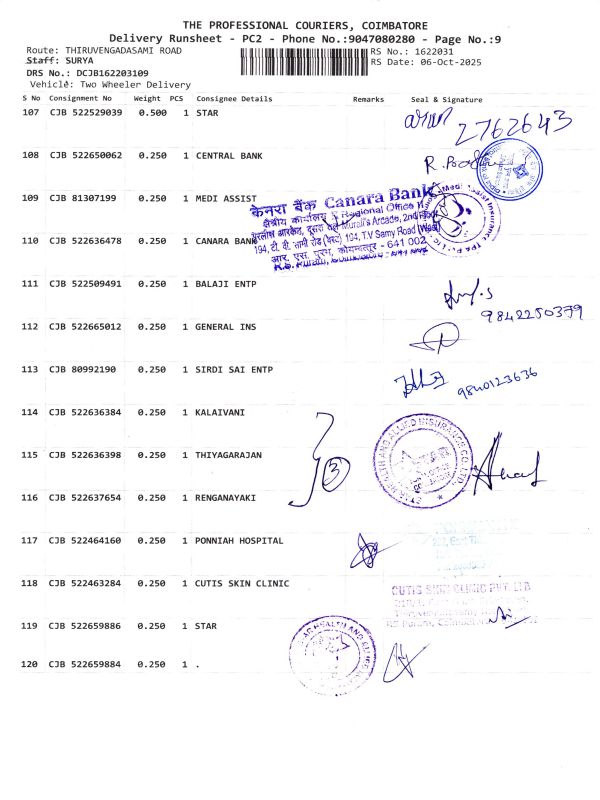 THE PROFESSIONAL COURIERS, COIMBATORE
Delivery Runsheet - PC2 - Phone No.:9047080280 - Page No.:9
Route: THIRUVENGADASAMI ROAD
RS No.: 1622031
Staff: SURYA
RS Date: 06-Oct-2025
DRS No.: DCJB162203109
Vehicle: Two Wheeler Delivery
S No Consignment No Weight PCS Consignee Details Remarks Seal & Signature
107 CJB 522529039 0.500 1 STAR
2762643
108 CJB 522650062 0.250 1 CENTRAL BANK
109 CJB 81307199 0.250 1 MEDI ASSIST
केनरा बैंक Canara Bank
क्षेत्रीय कार्यालय Regional Office
Murali's Arcade, 2nd Floor
194, T.V Samy Road (West)
आर. एस. पुरम, कोयम्बत्तूर - 641 002
110 CJB 522636478 0.250 1 CANARA BANK
111 CJB 522509491 0.250 1 BALAJI ENTP
9842250379
112 CJB 522665012 0.250 1 GENERAL INS
113 CJB 80992190 0.250 1 SIRDI SAI ENTP
9840123636
114 CJB 522636384 0.250 1 KALAIVANI
115 CJB 522636398 0.250 1 THIYAGARAJAN
3
116 CJB 522637654 0.250 1 RENGANAYAKI
117 CJB 522464160 0.250 1 PONNIAH HOSPITAL
118 CJB 522463284 0.250 1 CUTIS SKIN CLINIC
CUTIS SKIN CLINIC PVT. LTD
119 CJB 522659886 0.250 1 STAR
120 CJB 522659884 0.250 1 .